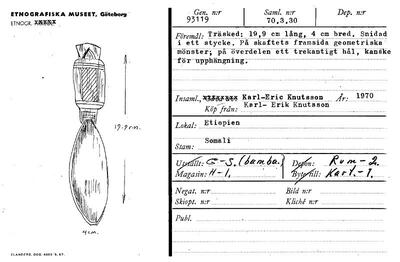 ETNOGRAFISKA MUSEET, Göteborg
ETNOGR.
19.9 cm.
4 cm.
ELANDERS, GBG. 4083 B. 67.
Gen. n:r
93119
Saml. n:r
70,3,30
Dep. n:r
Föremål: Träsked: 19,9 cm lång, 4 cm bred. Snidad
i ett stycke. På skaftets framsida geometriska
mönster, på överdelen ett trekantigt hål, kanske
för upphängning.
Insaml. Karl-Eric Knutsson År: 1970
Köp från: Karl- Erik Knutsson
Lokal: Etiopien
Stam: Somali
Utställt: G-S. (bambu.) Depon: Rum-2.
Magasin: H-1. Byte till: Kart.-1.
Negat. n:r Bild n:r
Skiopt. n:r Kliché n:r
Publ.